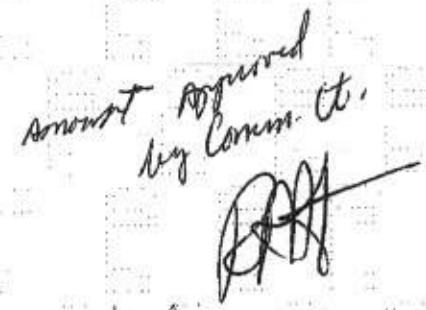 Amount Approved
by Comm. Ct.